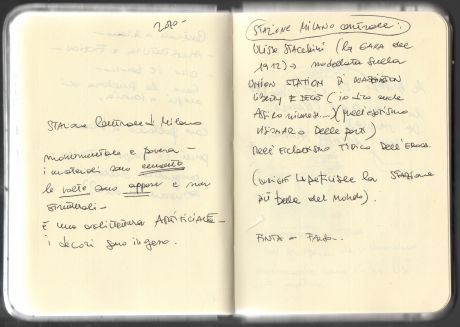 2010-
Stazione Centrale di Milano
monumentale e povera -
i materiali sono cemento
le volte sono appese e non
strutturali -
È una architettura ARTIFICIALE -
i decori sono in gesso.
STAZIONE MILANO CENTRALE:
Ulisse Stacchini (la GARA del
1912) → modellata sulla
UNION STATION DI WASHINGTON
LIBERTY E DECO (io dico anche
Assiro
VISIONARIO DELLE PORTE)
DELL'ECLETTISMO TIPICO DELL'EPOCA.
(WRIGHT LA DEFINISCE LA STAZIONE
più bella del MONDO).
FINTA - FALSA..